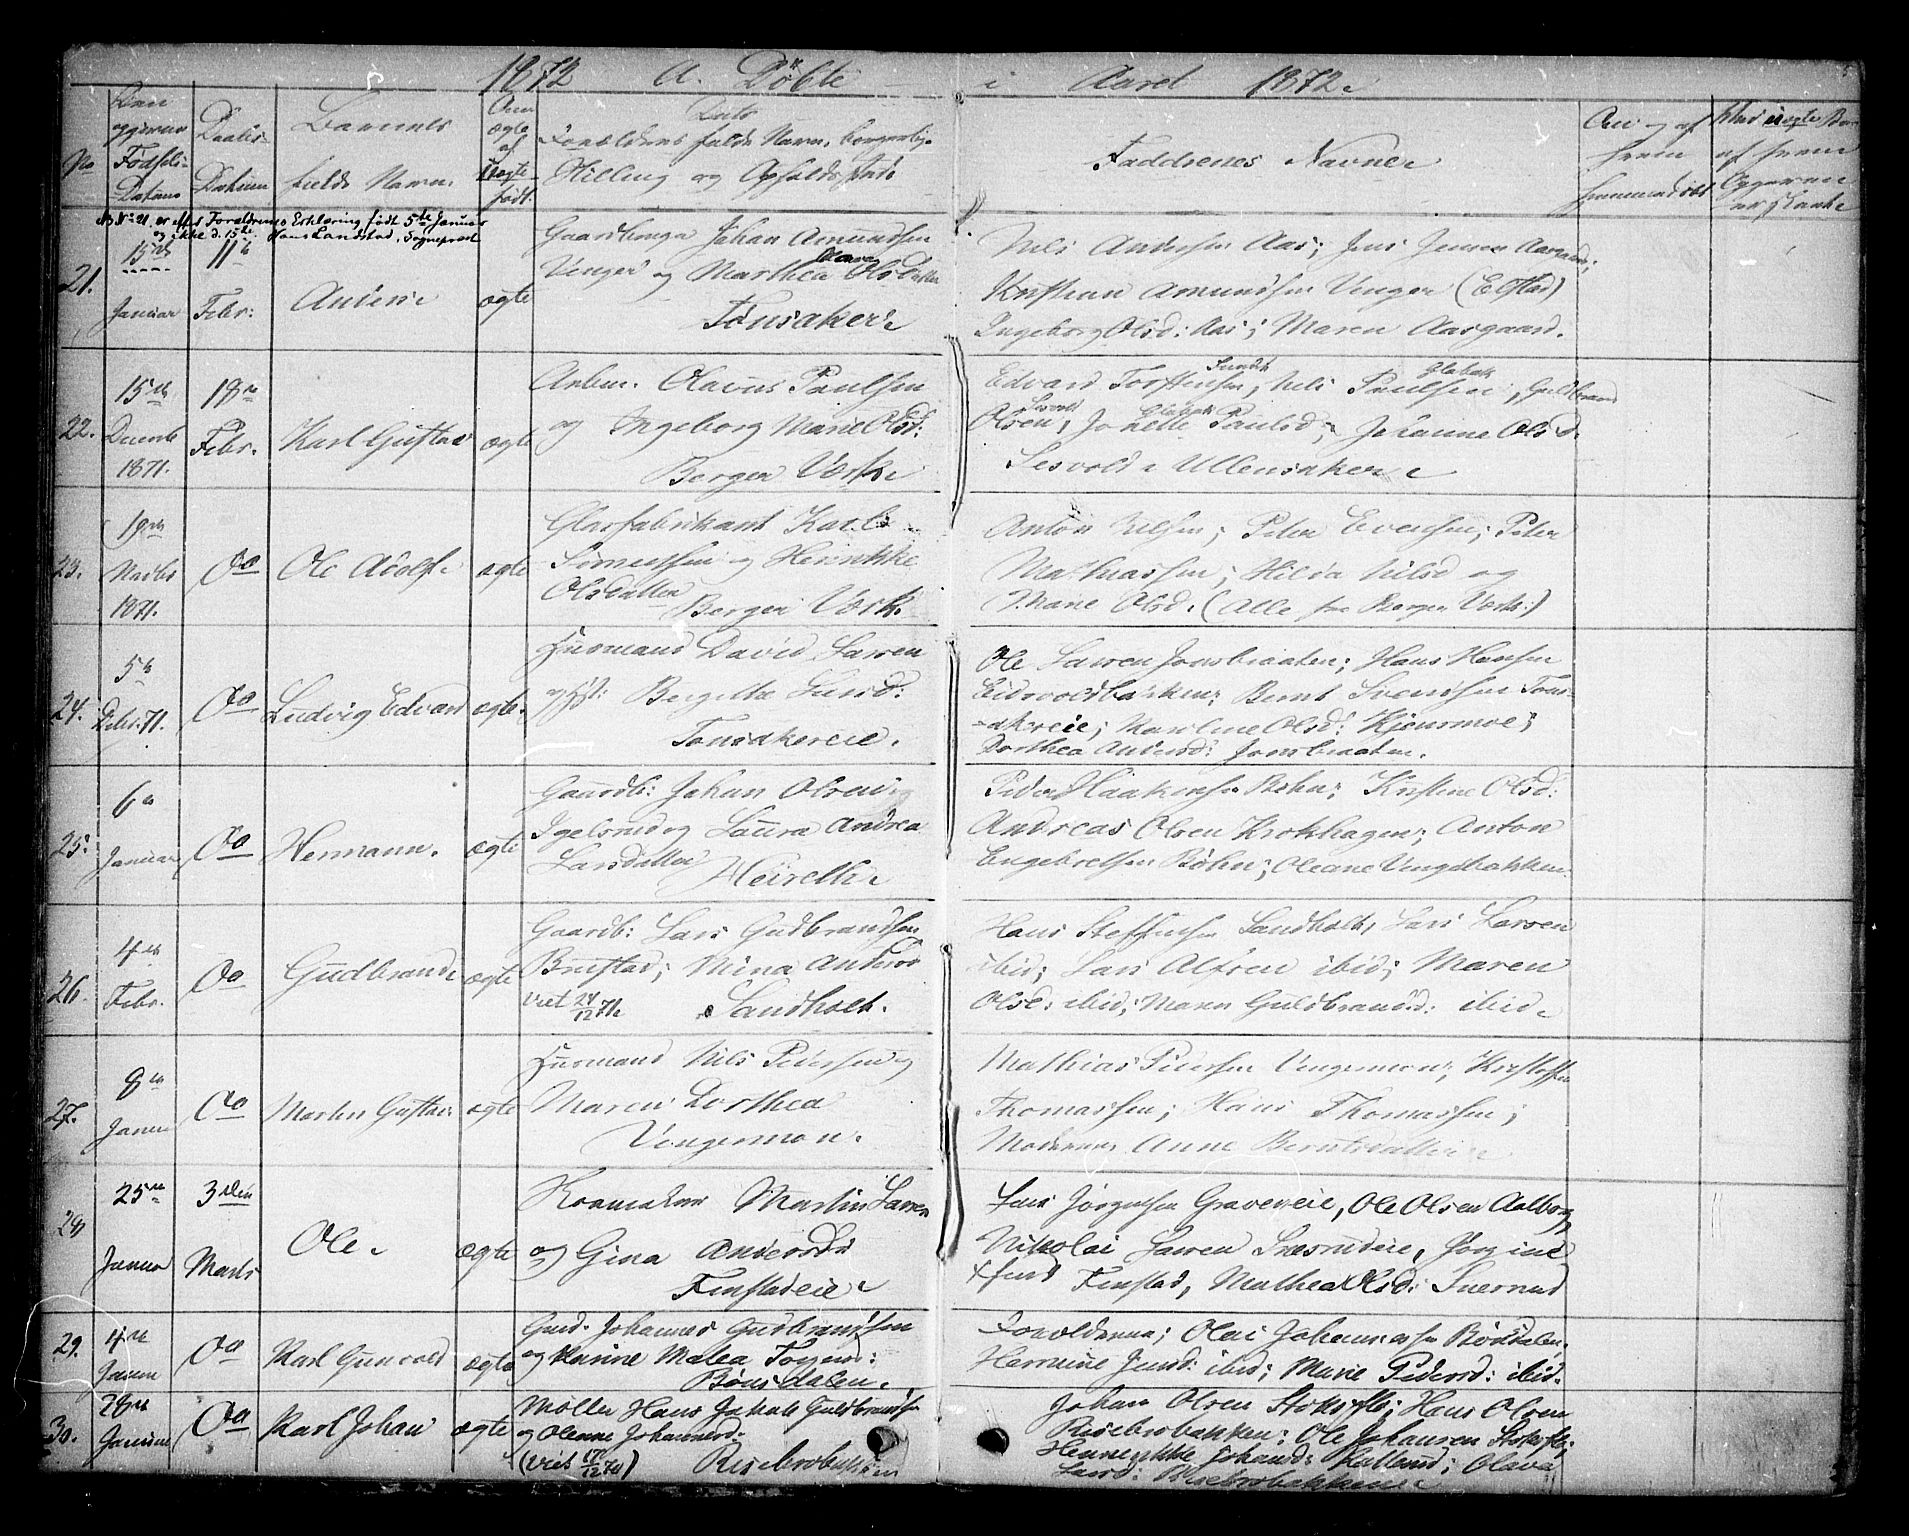 1872 A. Döbte i Aaret 1872.
No
Fødsels-
Datum
Daabs-
Datum
Barnets
fulde Navn.
Om
ægte
født
Dato
Forældrenes fulde Navn, borgerlige
Stilling og Opholdssted
Faddrenes Navne.
An og af
hvem
NB No 21. er efter Forældrenes Erklæring født 5te Januar
og ikke d. 15de. Hans Landstad, Sognepræst
21.
15de
Januar
11te
Febr:
Anders
ægte
Gaardbruger Johan Amundsen
Venger og Marthea Olsdatter
Tønsaker.
Nils Andersen Aas; Jens Jensen
Kristian Amundsen Venger (Elstad)
Ingeborg Olsd: Aas; Maren Aasgaard.
22.
15de
Decemb
1871.
18de
Febr.
Karl Gustav
ægte
Arbm. Olaves Paulsen
og Ingeborg Marie Olsd:
Berger Værk.
Edvard Torstensen, Nils Paulsen, Guldbrand
Olsen, Jonette Paulsd; Johanne Olsd.
Lesvold i Ullensaker.
23.
19de
Novbr
1871.
Do
Ole Adolf.
ægte
Glasfabrikant Karl
og Henrikke
Olsdatter
Berger Værk.
Anton Nilsen; Peter Evensen; Peter
Mathiassen; Hilda Nilsd og
Marie Olsd. (Alle fra Berger Værk.)
24.
5te
Debr. 71.
Do
Ludvig Edvard
ægte.
Husmand David Larsen
og Hst: Bergitte Larsd:
Tonsakereie.
Ole Larsen Jonsbraaten; Hans Hansen
Eidsvoldbakken; Bernt Svendsen Tons-
-akereie; Karoline Olsd: Kjonsmoe;
Dorthea Andersd: Jonsbraaten.
25.
6te
Januar
Do
Hermann.
ægte
Gaardb: Johan Olsen
Igelsrud og Laura Andrea
Larsdatter
Peder Haakensen Bøhn; Kristine Olsd:
Andreas Olsen Krokhagen; Anton
Engebretsen Bøhn; Oleane Vengsbakken.
26.
4de
Febr.
Do
Gudbrand
ægte
Gaardb: Lars Gudbrandsen
Brustad; Mina Andersd
viet 24/12 71.
Sandholt.
Hans Steffensen Sandholt, Lars Larsen
ibid; Lars Alfsen ibid; Maren
Olsd: ibid; Maren Guldbrandsd: ibid.
27.
8de
Januar
Do
Martin Gustav
ægte
Husmand Nils Pedersen og
Maren Dorthea
Vengermoen.
Mathias Pedersen Vengermoen; Kristoffer
Thomassen; Hans Thomassen;
Moderen Anne Berntsdatter
28
25de
Januar
3die
Marts
Ole.
ægte
Martin Larsen
og Gina Andersd:
Finstadeie.
Lars Jørgensen Graveveie, Ole Olsen Aalborg
Nikolai Larsen Jørgine
Finstad, Mathea Olsd:
29.
4de
Januar
Do
Karl Gunvald
ægte
Gaardb. Johannes Gudbrandsen
og Karine Malea
Bønsdalen.
Forældrene; Olai Johannessen Bønsdalen.
Hermine Jensd: ibid; Marie Pedersd: ibid.
30.
28de
Januar
Do
Karl Johan
ægte
Møller Hans Jakob Guldbrandsen
og Oleane Johannesd:
(viet 17/12 70)
Risebrobakken
Johan Olsen; Hans Olsen
Risebrobakken; Ole Johansen
Hennerikke Johansd: Rutland; Olava
Larsd: Risebrobakken.